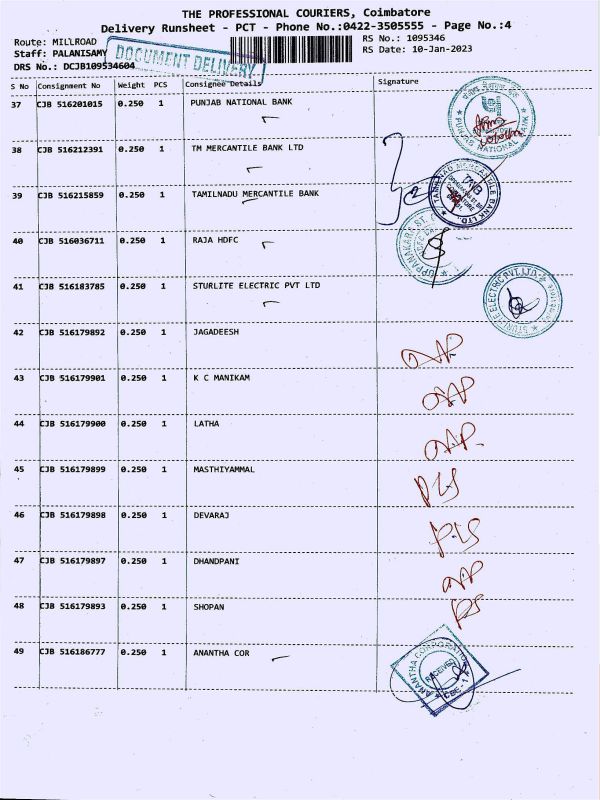 THE PROFESSIONAL COURIERS, Coimbatore
Delivery Runsheet - PCT - Phone No.:0422-3505555 - Page No.:4
Route: MILLROAD RS No.: 1095346
Staff: PALANISAMY RS Date: 10-Jan-2023
DOCUMENT DELIVERY
DRS No.: DCJB109534604
S No Consignment No Weight PCS Consignee Details Signature
37 CJB 516201015 0.250 1 PUNJAB NATIONAL BANK
PUNJAB NATIONAL BANK
38 CJB 516212391 0.250 1 TM MERCANTILE BANK LTD
39 CJB 516215859 0.250 1 TAMILNADU MERCANTILE BANK
TAMILNAD MERCANTILE BANK LTD.
TMB
40 CJB 516036711 0.250 1 RAJA HDFC
41 CJB 516183785 0.250 1 STURLITE ELECTRIC PVT LTD
STURLITE ELECTRIC PVT. LTD.
42 CJB 516179892 0.250 1 JAGADEESH
43 CJB 516179901 0.250 1 K C MANIKAM
44 CJB 516179900 0.250 1 LATHA
45 CJB 516179899 0.250 1 MASTHIYAMMAL
46 CJB 516179898 0.250 1 DEVARAJ
47 CJB 516179897 0.250 1 DHANDPANI
48 CJB 516179893 0.250 1 SHOPAN
49 CJB 516186777 0.250 1 ANANTHA COR
ANANTHA CORPORATION
RECEIVED